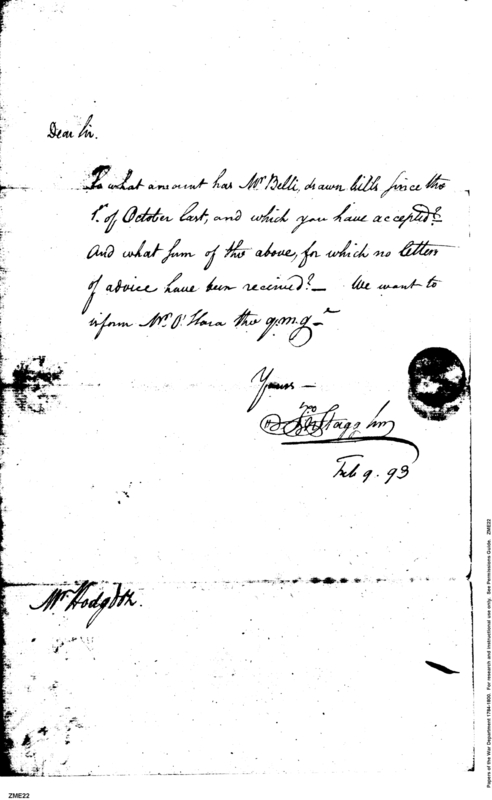 Dear Sir.
To what amount has Mr. Belli, drawn bills since the
1st. of October last, and which you have accepted?
And what sum of the above, for which no letters
of advice have been received? — We want to
inform Mr. O'Hara the q.m.g.
Yours —
Jno Stagg Jun
Feb 9. 93
Mr. Hodgdon.
Papers of the War Department 1784-1800. For research and instructional use only. See Permissions Guide. ZME22
ZME22